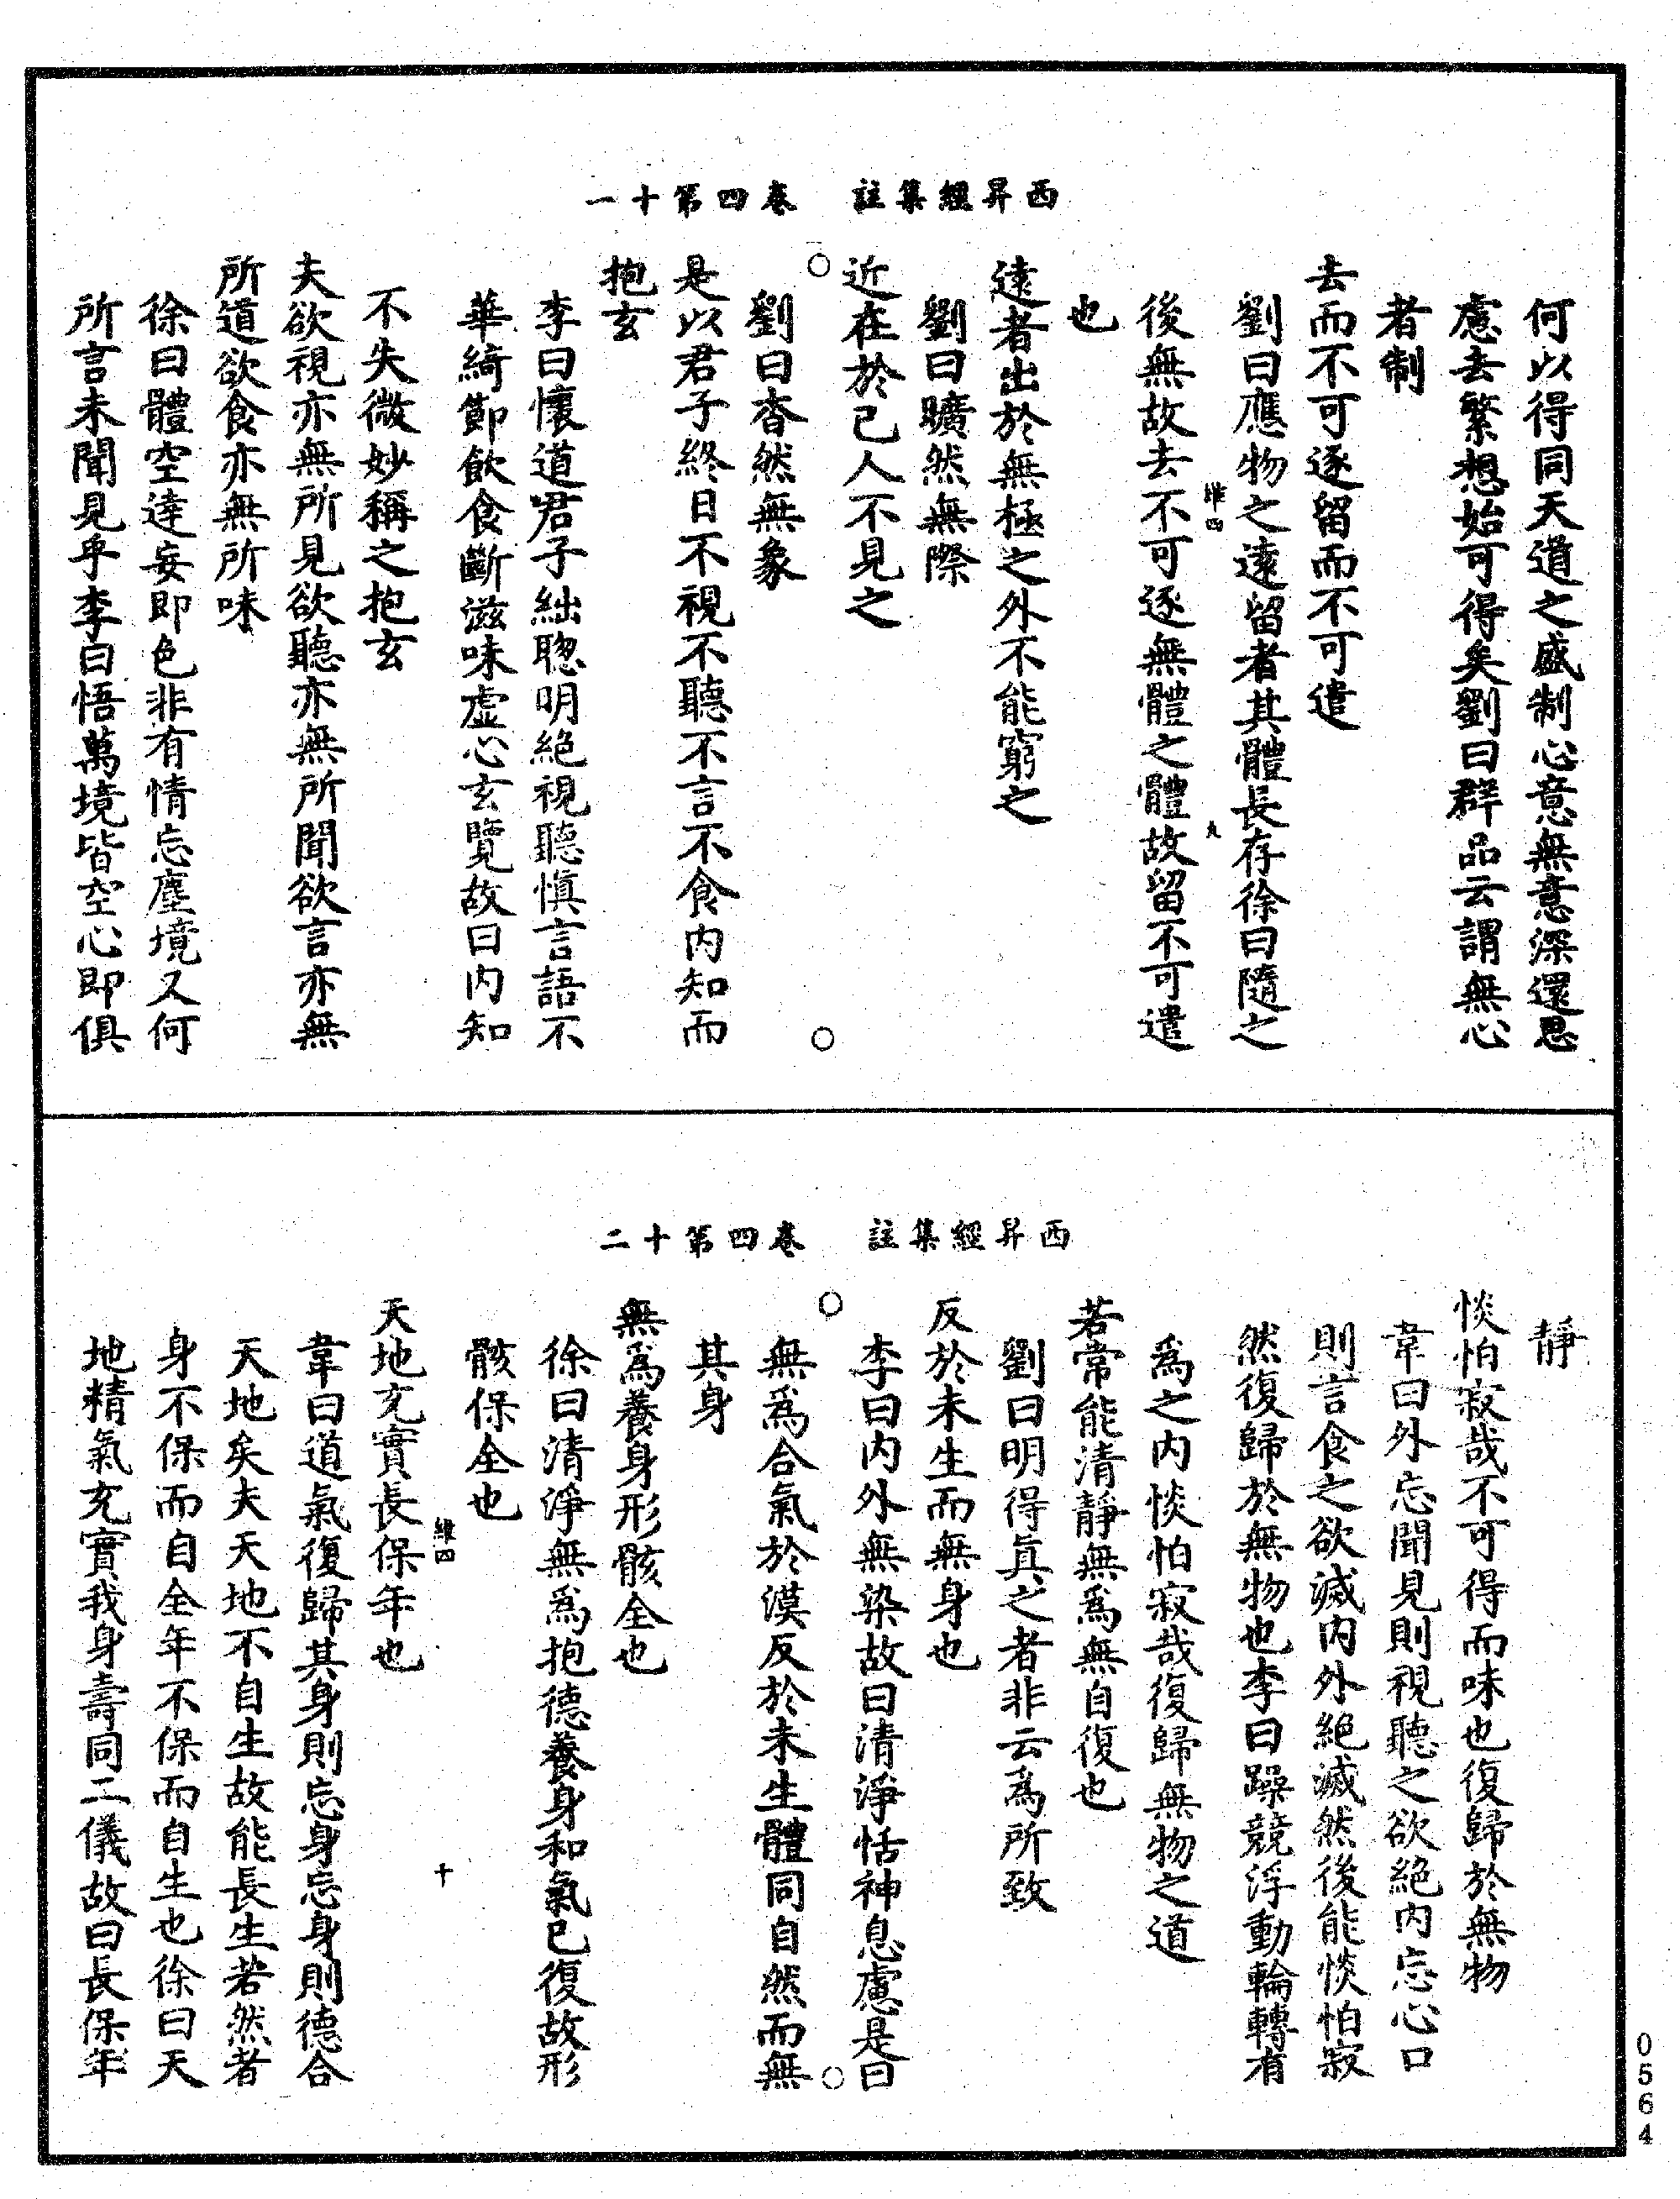 西昇經集註　卷四第十一
何以得同天道之盛制心意無意深還思
慮去繁想始可得矣劉曰群品云謂無心
者制
去而不可逐留而不可遣
劉曰應物之遠留者其體長存徐曰隨之
維四　九
後無故去不可逐無體之體故留不可遣
也
遠者出於無極之外不能窮之
劉曰曠然無際
近在於己人不見之
劉曰杳然無象
是以君子終日不視不聽不言不食內知而
抱玄
李曰懷道君子絀聰明絕視聽慎言語不
華綺節飲食斷滋味虛心玄覽故曰內知
不失微妙稱之抱玄
夫欲視亦無所見欲聽亦無所聞欲言亦無
所道欲食亦無所味
徐曰體空達妄即色非有情忘塵境又何
所言未聞見乎李曰悟萬境皆空心即俱
西昇經集註　卷四第十二
靜
惔怕寂哉不可得而味也復歸於無物
韋曰外忘聞見則視聽之欲絕內忘心口
則言食之欲滅內外絕滅然後能惔怕寂
然復歸於無物也李曰躁競浮動輪轉有
為之內惔怕寂哉復歸無物之道
若常能清靜無為無自復也
劉曰明得真之者非云為所致
反於未生而無身也
李曰內外無染故曰清淨恬神息慮是曰
無為合氣於漠反於未生體同自然而無
其身
無為養身形骸全也
徐曰清淨無為抱德養身和氣已復故形
骸保全也
維四　十
天地充實長保年也
韋曰道氣復歸其身則忘身忘身則德合
天地矣夫天地不自生故能長生若然者
身不保而自全年不保而自生也徐曰天
地精氣充實我身壽同二儀故曰長保年
0564